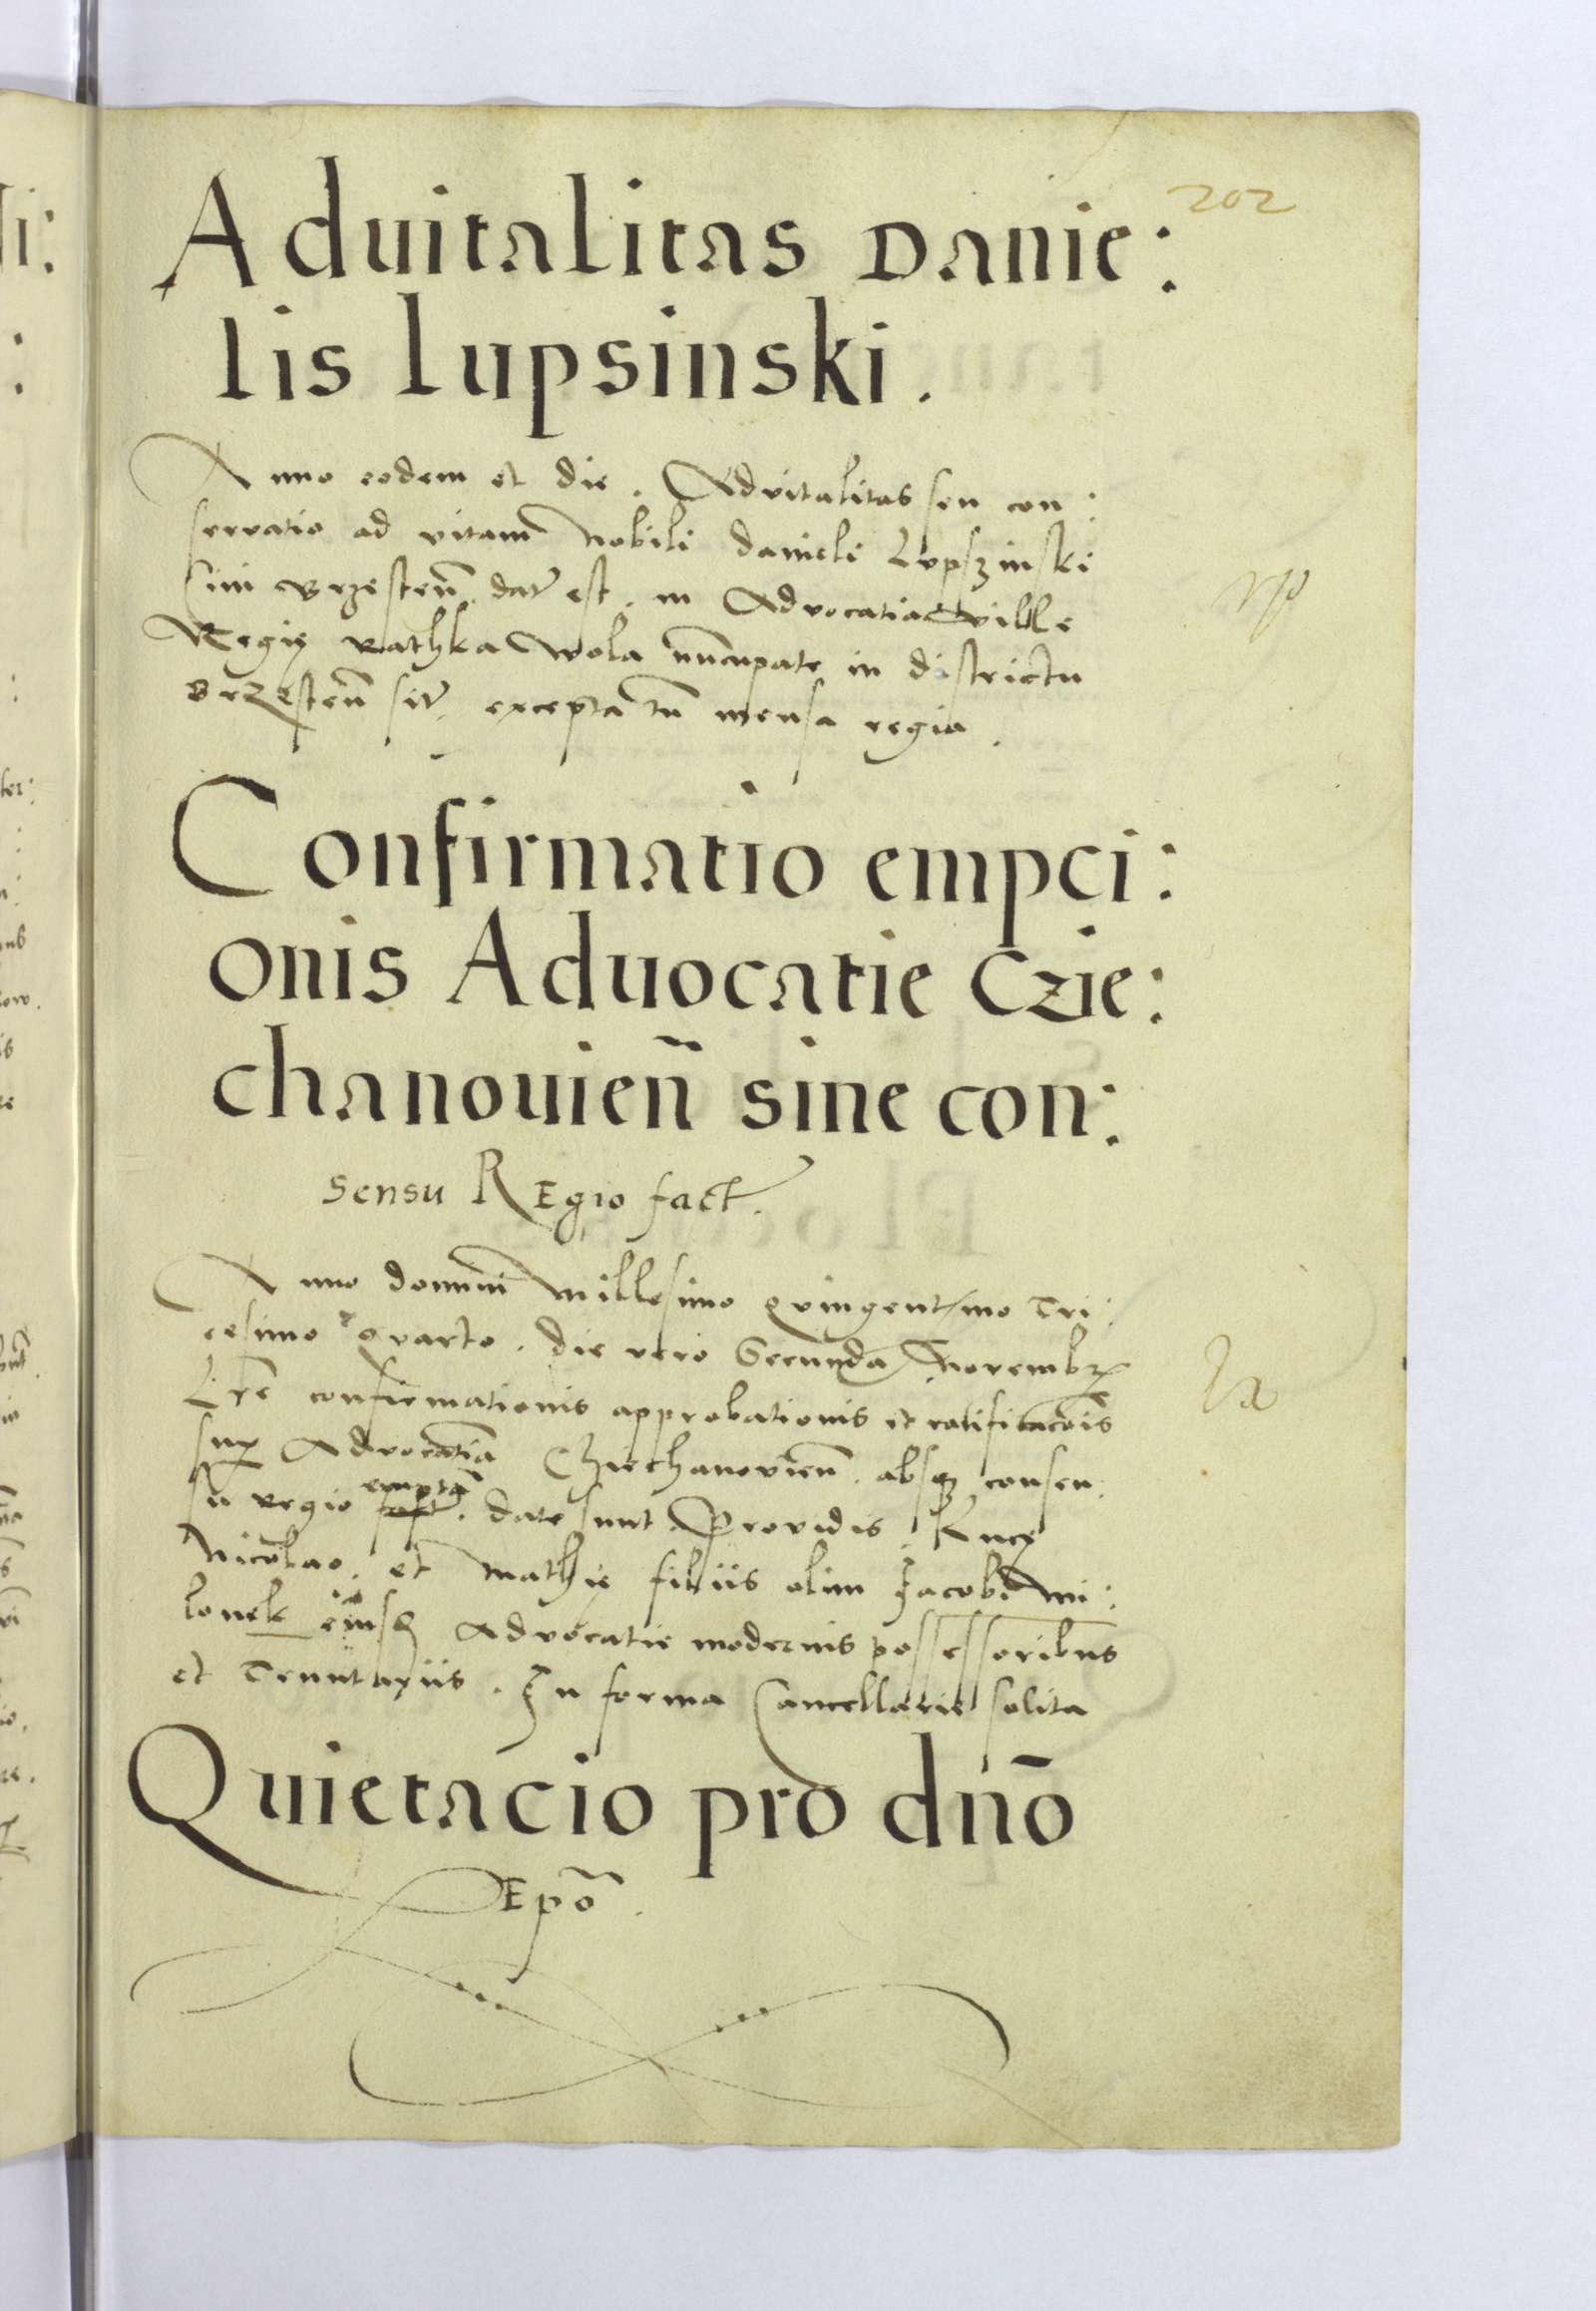 202
Aduitalitas Danie:
lis Lupsinski.
Anno eodem et die. Aduitalitas seu con:
seruatio ad vitam Nobili danieli Lupszinski
Ciui Brzesteñ. dať est. in Aduocatia ville
Regię Rathka wola nuncupate in districtu
Brzesteñ siť. excepta tñ mensa regia.
Confirmatio empci:
onis Aduocatie Czie:
chanouieñ sine con:
sensu Regio fact.
Anno domini Millesimo quingentesimo Tri:
cesimo quarto. die vero Secunda Nouembr
Lr̃e confirmationis approbationis et ratificacõis
sup Aduocatiã Cziechanouieñ. absqȝ consen:
su regio emptã fact. date sunt. Prouidis.
Nicolao. et Mathię filiis olim Jacobi Mi:
lonek eiusd Aduocatie modernis possessoribus
et Tenutariis. In forma Cancellarie solita
Quietacio pro dño
Epõ.